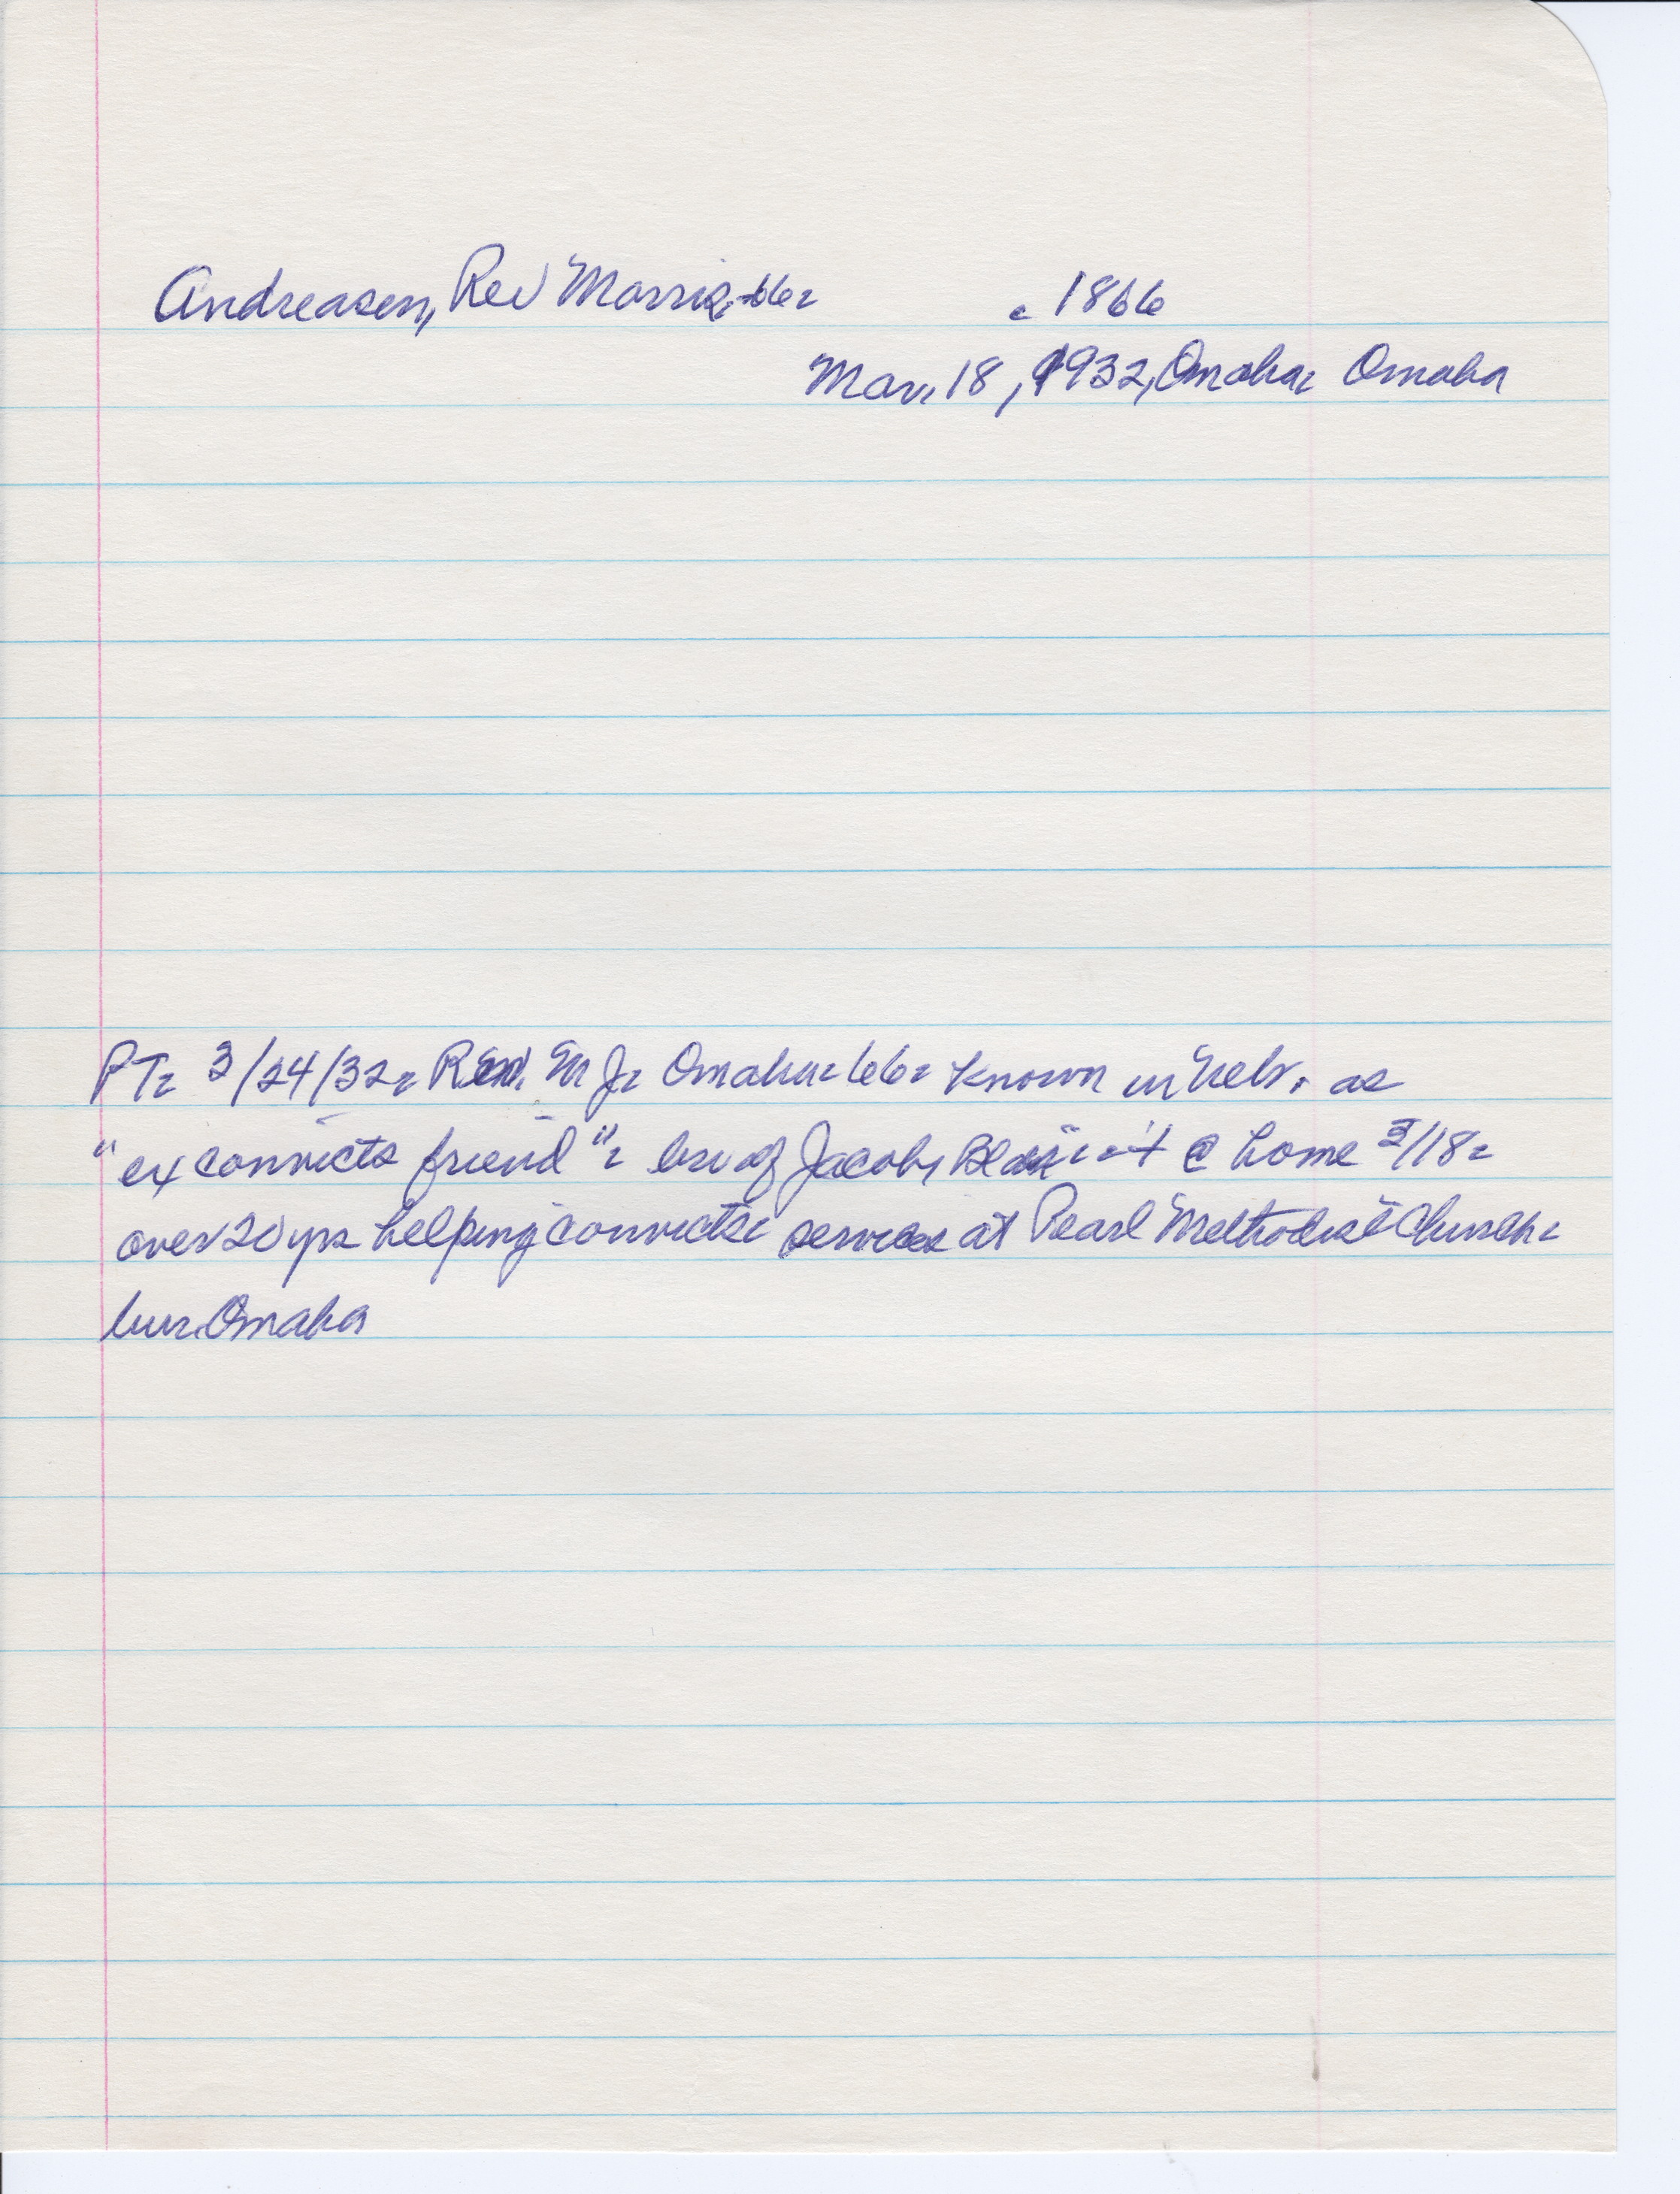 Andreasen, Rev Morris, -66- c 1866
Mar. 18, 1932, Omaha- Omaha
PT- 3/24/32- Rev. M J- Omaha- 66- known in Neb. as
"ex convicts friend"- bro of Jacob, Blair- at @ home 3/18-
over 20 yrs helping convicts- services at Pearl Methodist Church-
bur. Omaha